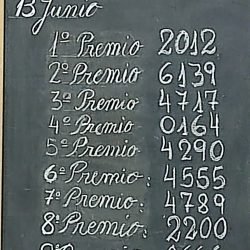 13 Junio
1º Premio 2012
2º Premio 6139
3º Premio 4717
4º Premio 0164
5º Premio 4290
6º Premio: 4555
7º Premio: 4789
8º Premio: 2200